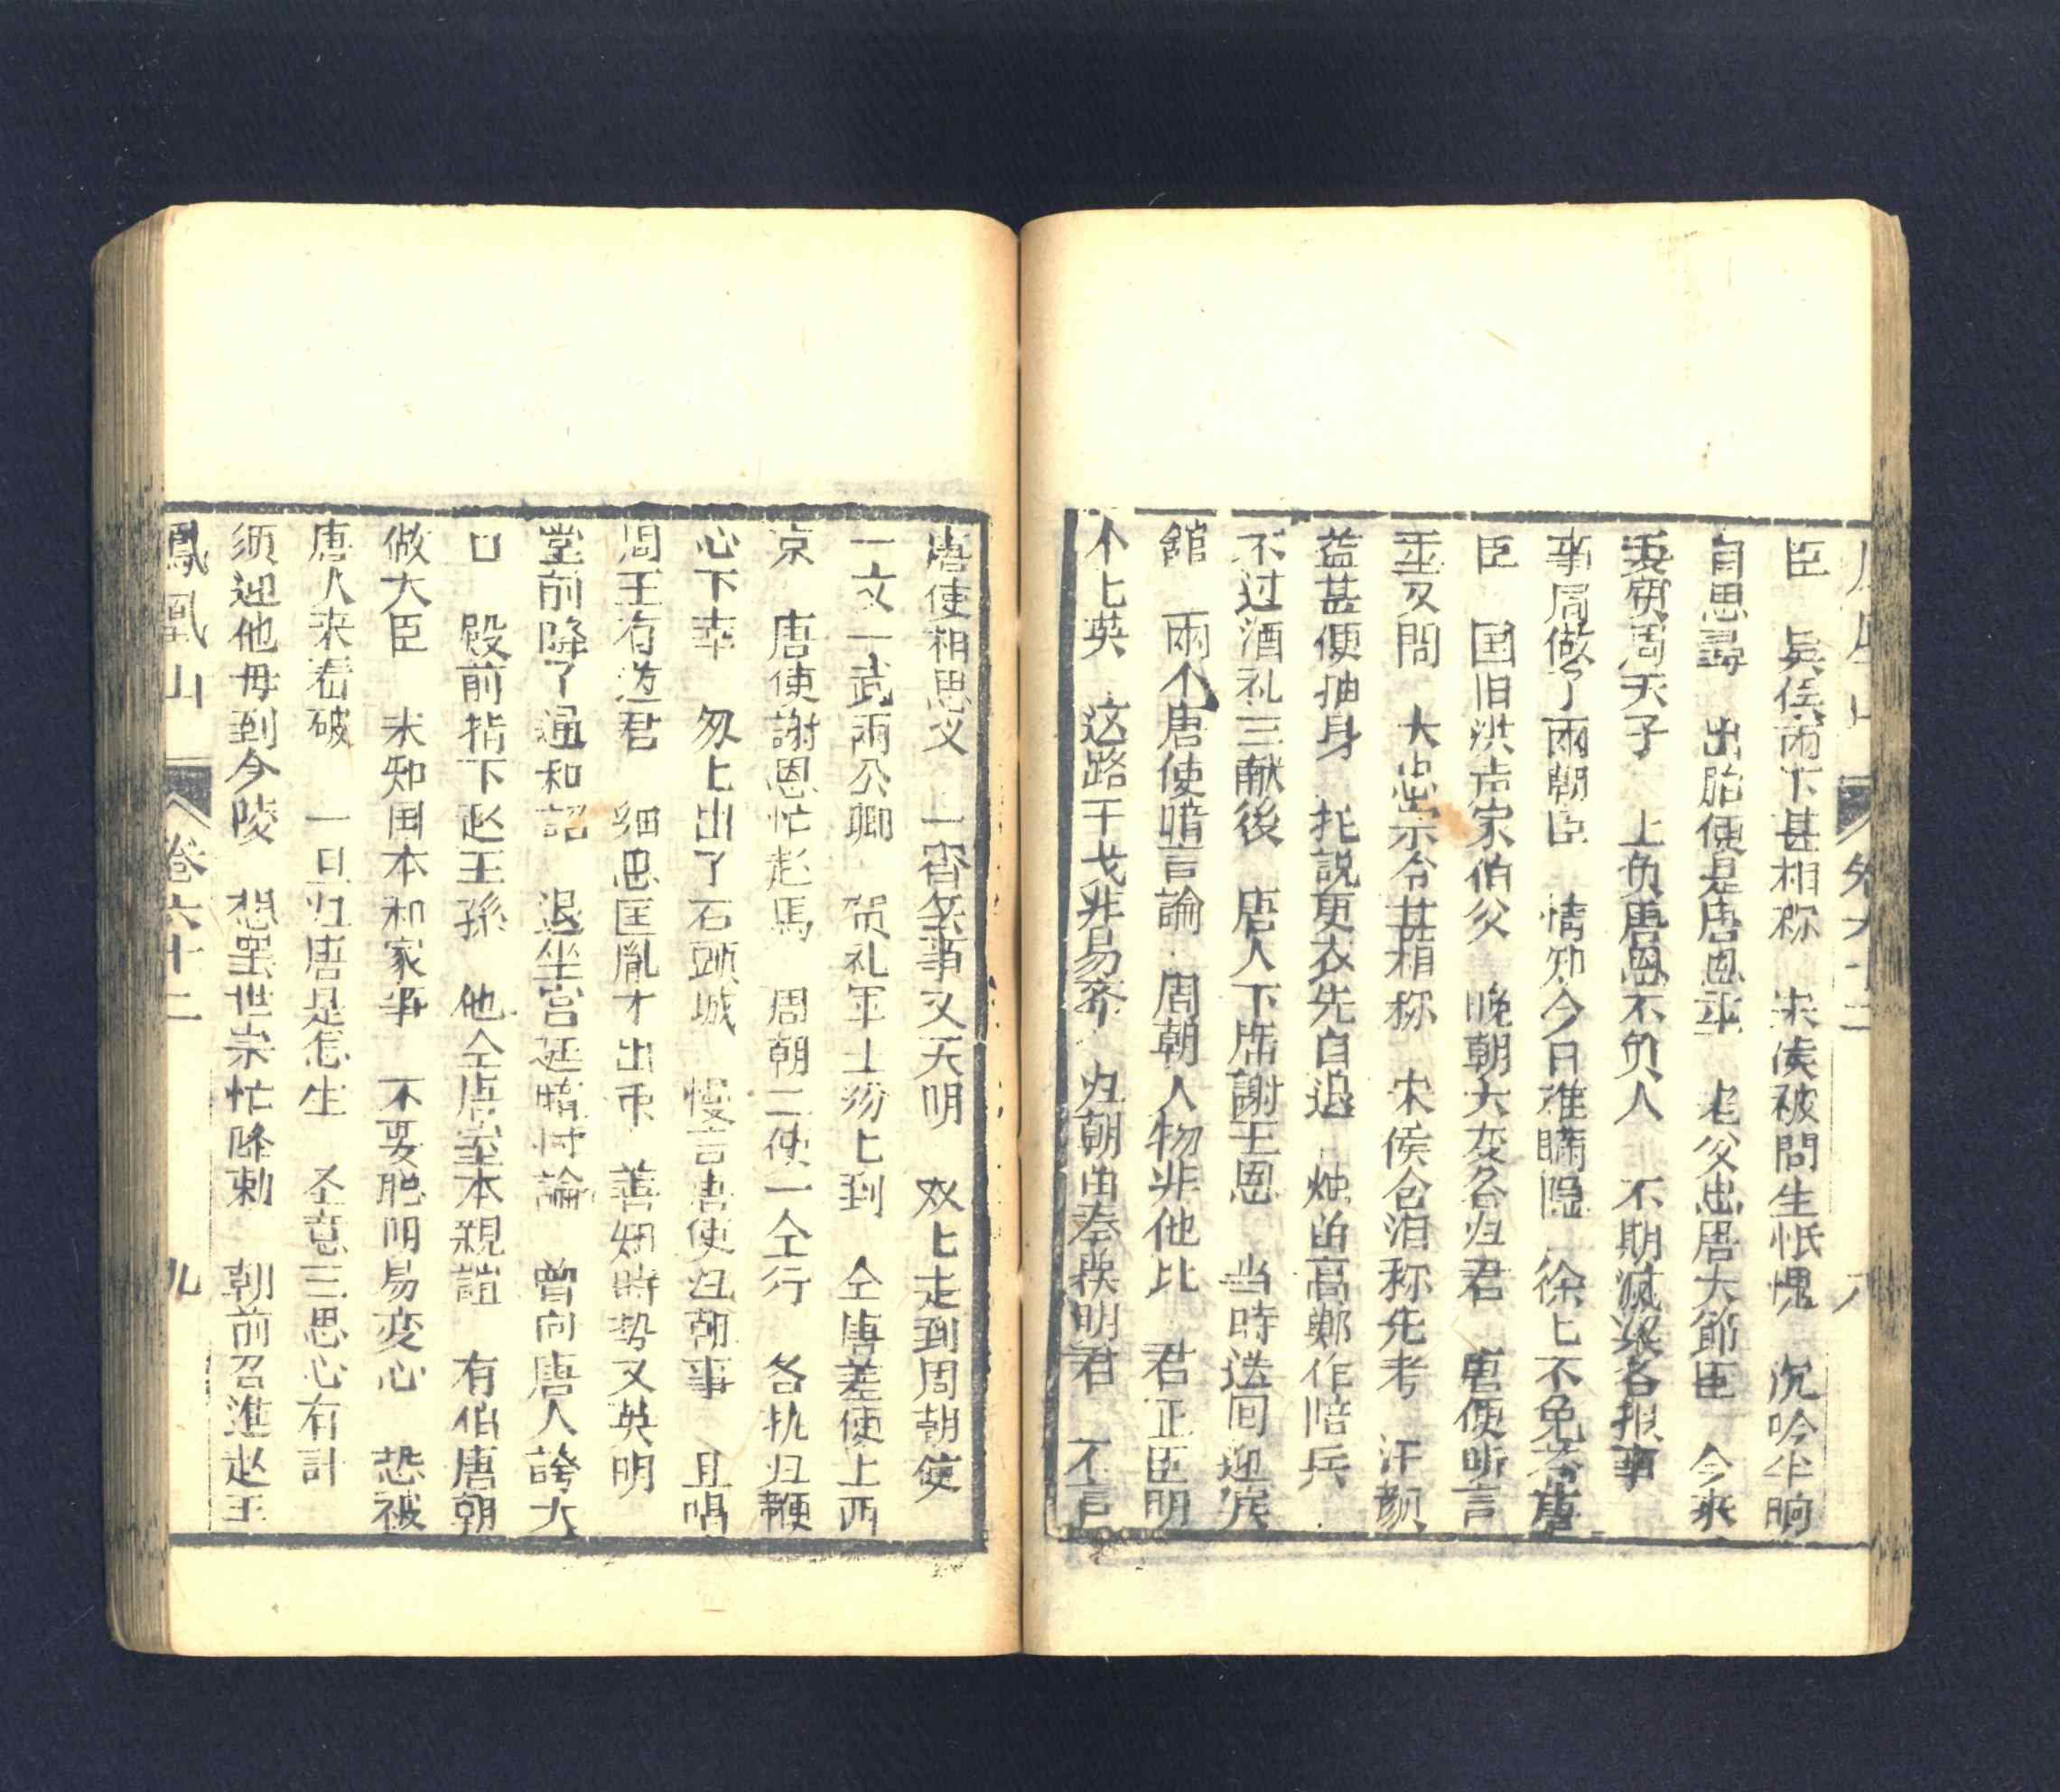 臣 吴侯両下甚相称 宋侯被問生慚愧 沉吟半晌
自思尋 出胎便是唐恩重 老父忠唐大節臣 今来
事周天子 上負唐恩不負人 不期滅梁各报事
事局做了兩朝臣 情知今日难瞒隐 徐匕不免荅唐
臣 国旧洪声家伯父 晚朝大变各归君 唐使听言
重又問 大忠宗令甚相称 宋侯含泪称先考 汗颜
益甚便抽身 托説更衣先自退 高鄭作陪兵
不过酒礼三献後 唐人下席謝王恩 当時送回迎宾
館 兩个唐使暗言論 周朝人物非他比 君正臣明
个匕英 这路干戈非易来 归朝由奉候明君 不言
唐使相思义 一宵無事又天明 双匕走到周朝使
一文一武兩公卿 贺礼军士纷匕到 仝唐差使上西
京 唐使謝恩忙起馬 周朝二使一仝行 各执归鞭
心下幸 匆匕出了石頭城 慢言唐使归朝事 且唱
周王有道君 細思匡胤才出衆 善知時势又英明
堂前降了通和詔 退坐宫廷暗忖論 曾向唐人誇大
口 殿前指下赵王孫 他仝唐室本親誼 有伯唐朝
做大臣 未知国本和家事 不要肥明易变心 恐被
唐人来看破 一旦归唐是怎生 圣意三思心有計
须迎他母到今陵 想罢世宗忙降勅 朝前召進赵王
鳳凰山 卷六十二 九